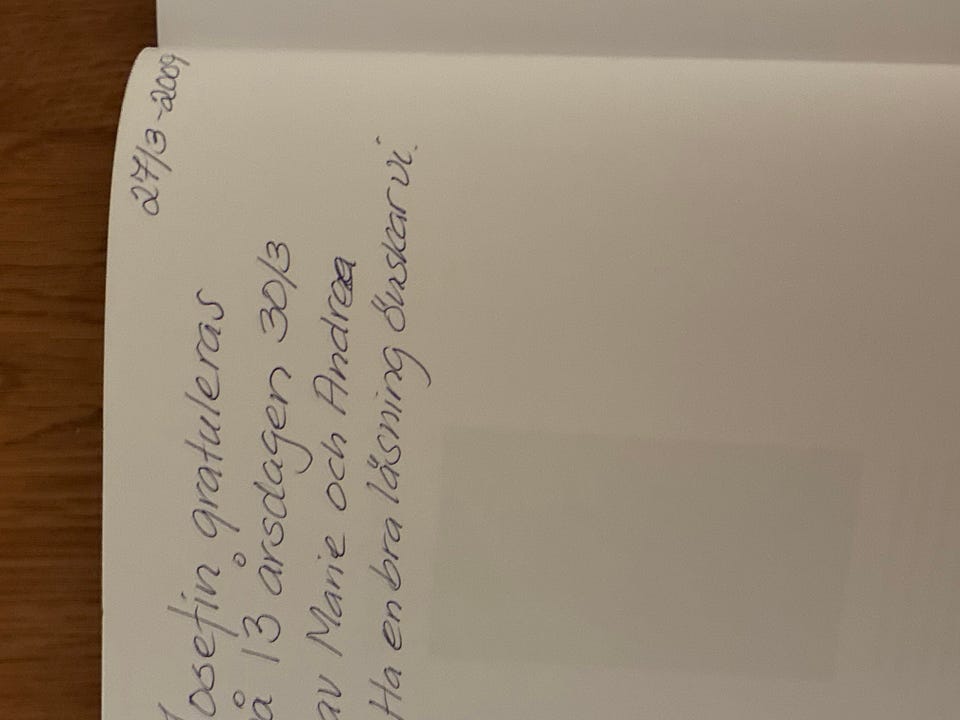 27/3-2009
Josefin gratuleras
på 13 årsdagen 30/3
av Marie och Andrea
Ha en bra läsning önskar vi.